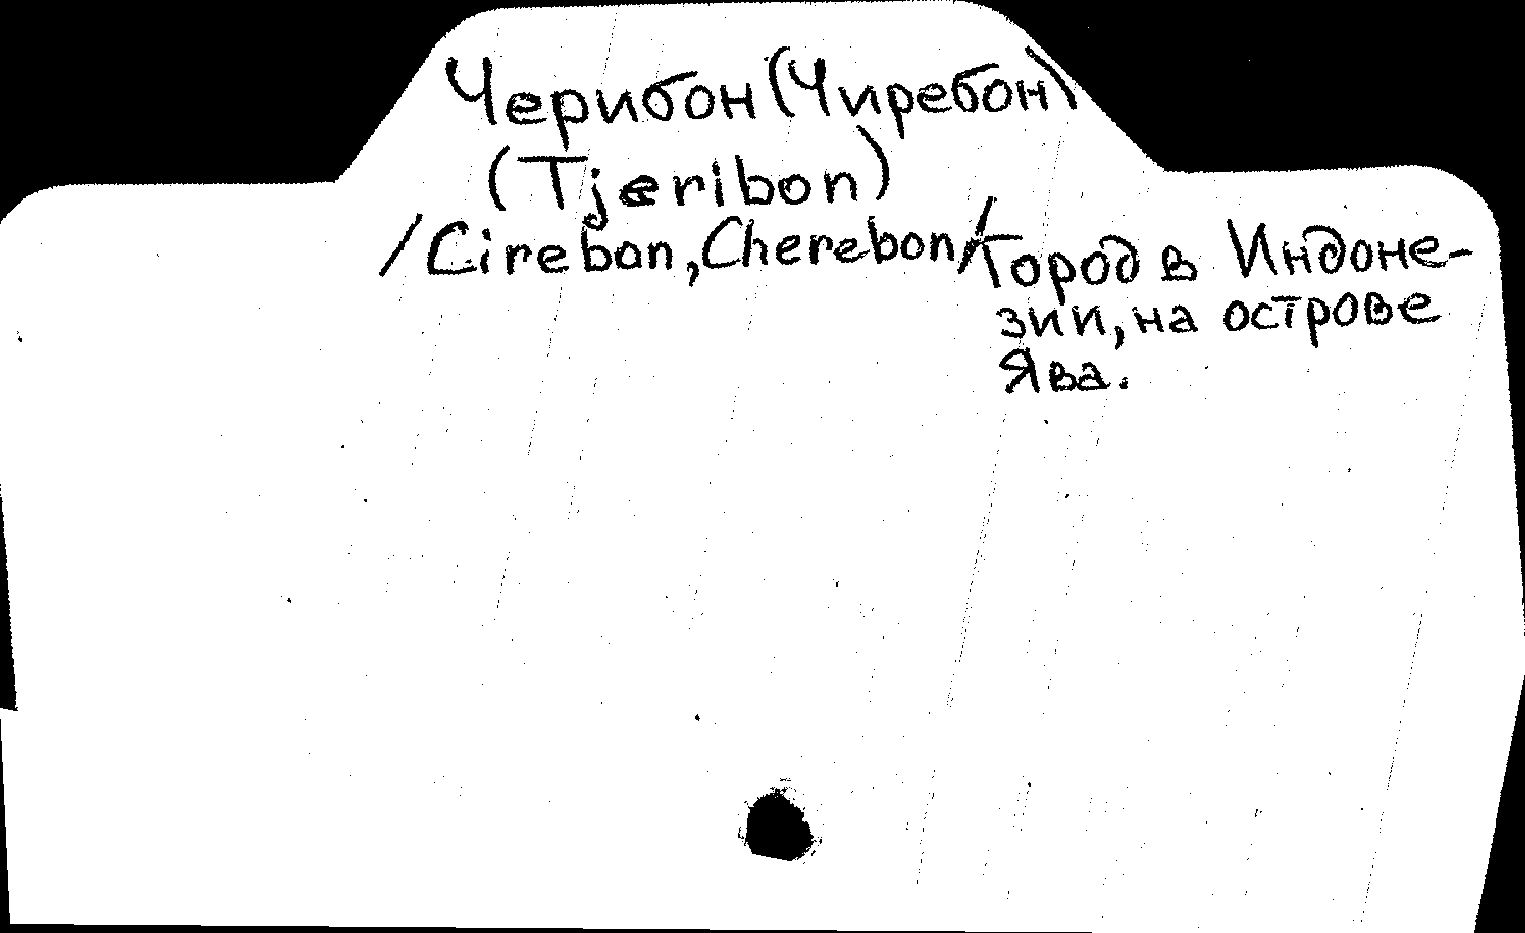 Черибон (Чиребон)
(Tjeribon)
/Cirebon, Cherebon/
Город в Индоне-
зии, на острове
Ява.